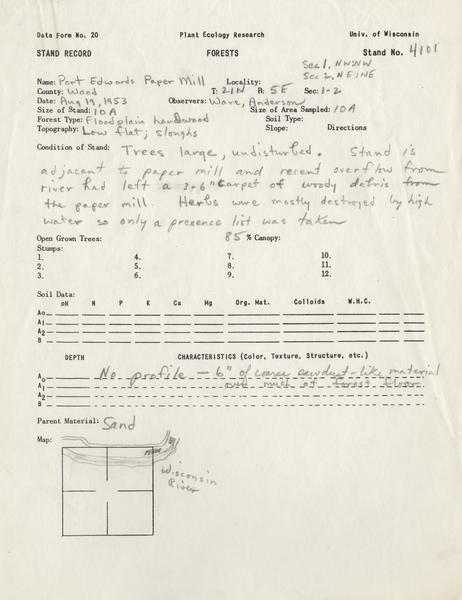 Data Form No. 20 Plant Ecology Research Univ. of Wisconsin
STAND RECORD FORESTS Stand No. 4101
Sec 1, NW:NW
Sec 2, NE:NE
Name: Port Edwards Paper Mill Locality:
County: Wood T: 21N R: 5E Sec: 1-2
Date: Aug 19, 1953 Observers: Ware, Anderson
Size of Stand: 10A Size of Area Sampled: 10A
Forest Type: Floodplain hardwood Soil Type:
Topography: Low flat; sloughs Slope: Directions
Condition of Stand: Trees large, undisturbed. Stand is
adjacent to paper mill and recent overflow from
river had left a 3-6" carpet of woody debris from
the paper mill. Herbs were mostly destroyed by high
water so only a presence list was taken
Open Grown Trees: 85 % Canopy:
Stumps:
1. 4. 7. 10.
2. 5. 8. 11.
3. 6. 9. 12.
Soil Data:
pH N P K Ca Mg Org. Mat. Colloids W.H.C.
Ao
A1
A2
B
DEPTH CHARACTERISTICS (Color, Texture, Structure, etc.)
Ao No profile — 6" of coarse sawdust-like material
A1 over much of forest floor
A2
B
Parent Material: Sand
Map:
Wisconsin
River